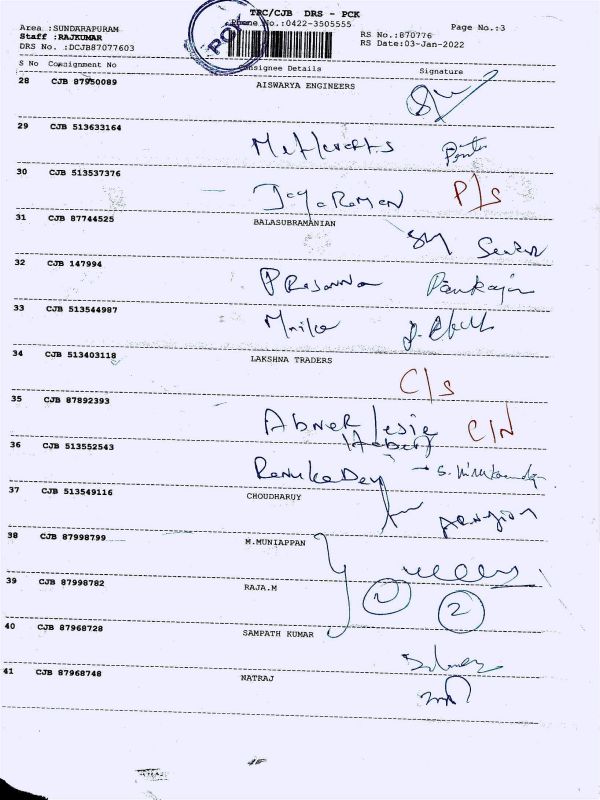 TRC/CJB DRS - PCK
Phone No.:0422-3505555
Page No.:3
Area :SUNDARAPURAM
Staff :RAJKUMAR
DRS No. :DCJB87077603
RS No.:870776
RS Date:03-Jan-2022
PCK
S No Consignment No Consignee Details Signature
28 CJB 87950089 AISWARYA ENGINEERS
29 CJB 513633164
30 CJB 513537376 JayaRaman P/S
31 CJB 87744525 BALASUBRAMANIAN
32 CJB 147994 Prasanna Pankaja
33 CJB 513544987
34 CJB 513403118 LAKSHNA TRADERS C/S
35 CJB 87892393 Abner C/N
36 CJB 513552543 RenukaDev
37 CJB 513549116 CHOUDHARUY
38 CJB 87998799 M.MUNIAPPAN
39 CJB 87998782 RAJA.M 2
40 CJB 87968728 SAMPATH KUMAR
41 CJB 87968748 NATRAJ